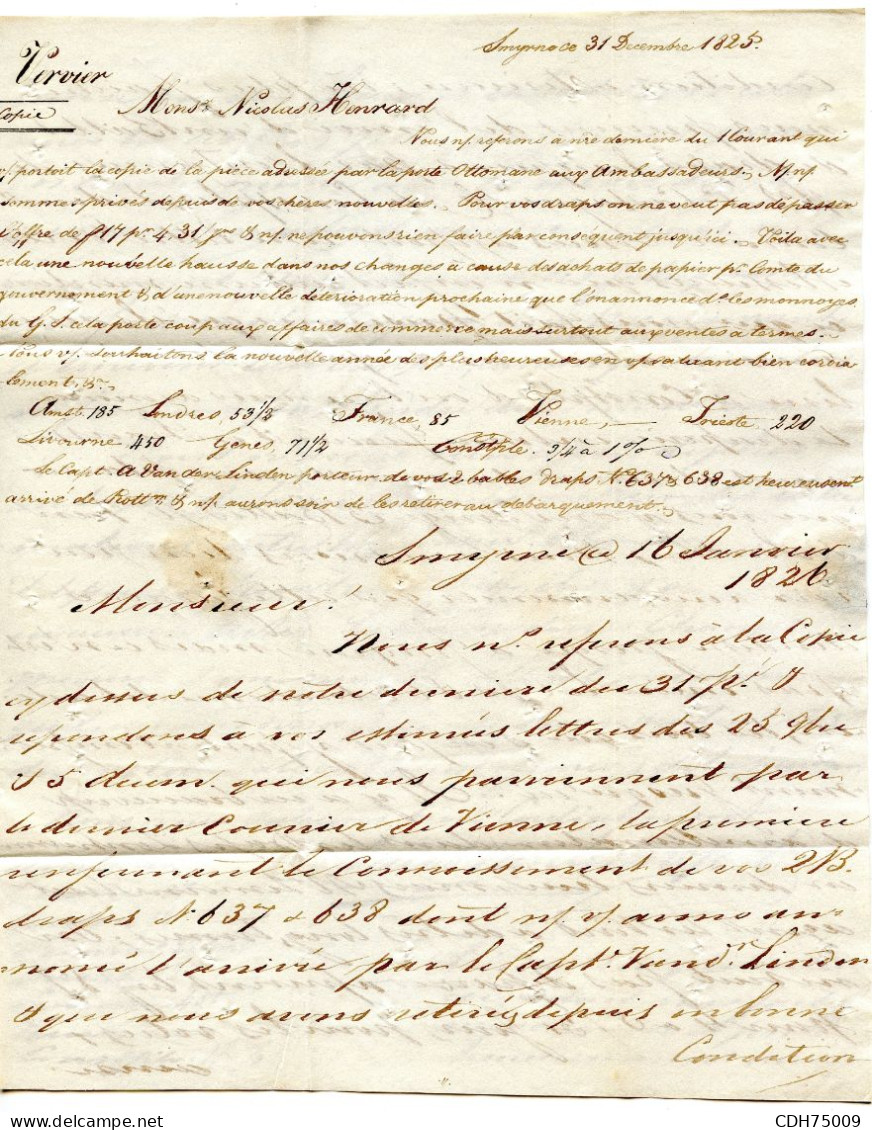 Smyrne ce 31 Decembre 1825.
Vervier
Copie
Monsr. Nicolas Honrard
Nous n/. referons a nre derniere du 1 Courant qui
v/. portoit la copie de la piece adressée par la porte Ottomane aux Ambassadeurs. N/. n/.
sommes privés depuis de vos cheres nouvelles. Pour vos draps on ne veut pas depasser
l'offre de f 17 pr 4.31/ & n/. ne pouvons rien faire par consequent jusqu'ici. Voila avec
cela une nouvelle hausse dans nos changes a cause des achats de papier pr. Comte du
gouvernement & d'une nouvelle deterioration prochaine que l'on annonce des monnoyes
du G. S. cela porte coup aux affaires de commerce mais surtout aux ventes a termes.
Nous v/. souhaitons la nouvelle année des plus heureuses en v/. saluant bien cordia
lement, &.
Amst. 185 Londres, 53 1/2 France, 85 Vienne, — Trieste 220
Livourne 450 Genes, 71 1/2 Constple. 3/4 à 1 %
Le Capt. A Van der Linden porteur de vos 2 balles draps N. 637 & 638 est heureusent
arrivé de Rottm & n/. aurons soin de les retirer au debarquement.
Smyrne ce 16 Janvier
1826
Monsieur!
Nous ns. referons à la Copie
cy dessus de notre derniere du 31 pé. &
repondons à vos estimées lettres des 25 9bre
& 5 decem. qui nous parviennent par
le dernier Courrier de Vienne, la premiere
renfermant le Connoissement de vos 2 B.
draps N. 637 & 638 dont n/. v/. avons an-
noncé l'arrivée par le Capt. Vandr. Linden
& que nous avons retirées depuis en bonne
Condition
CDH75009